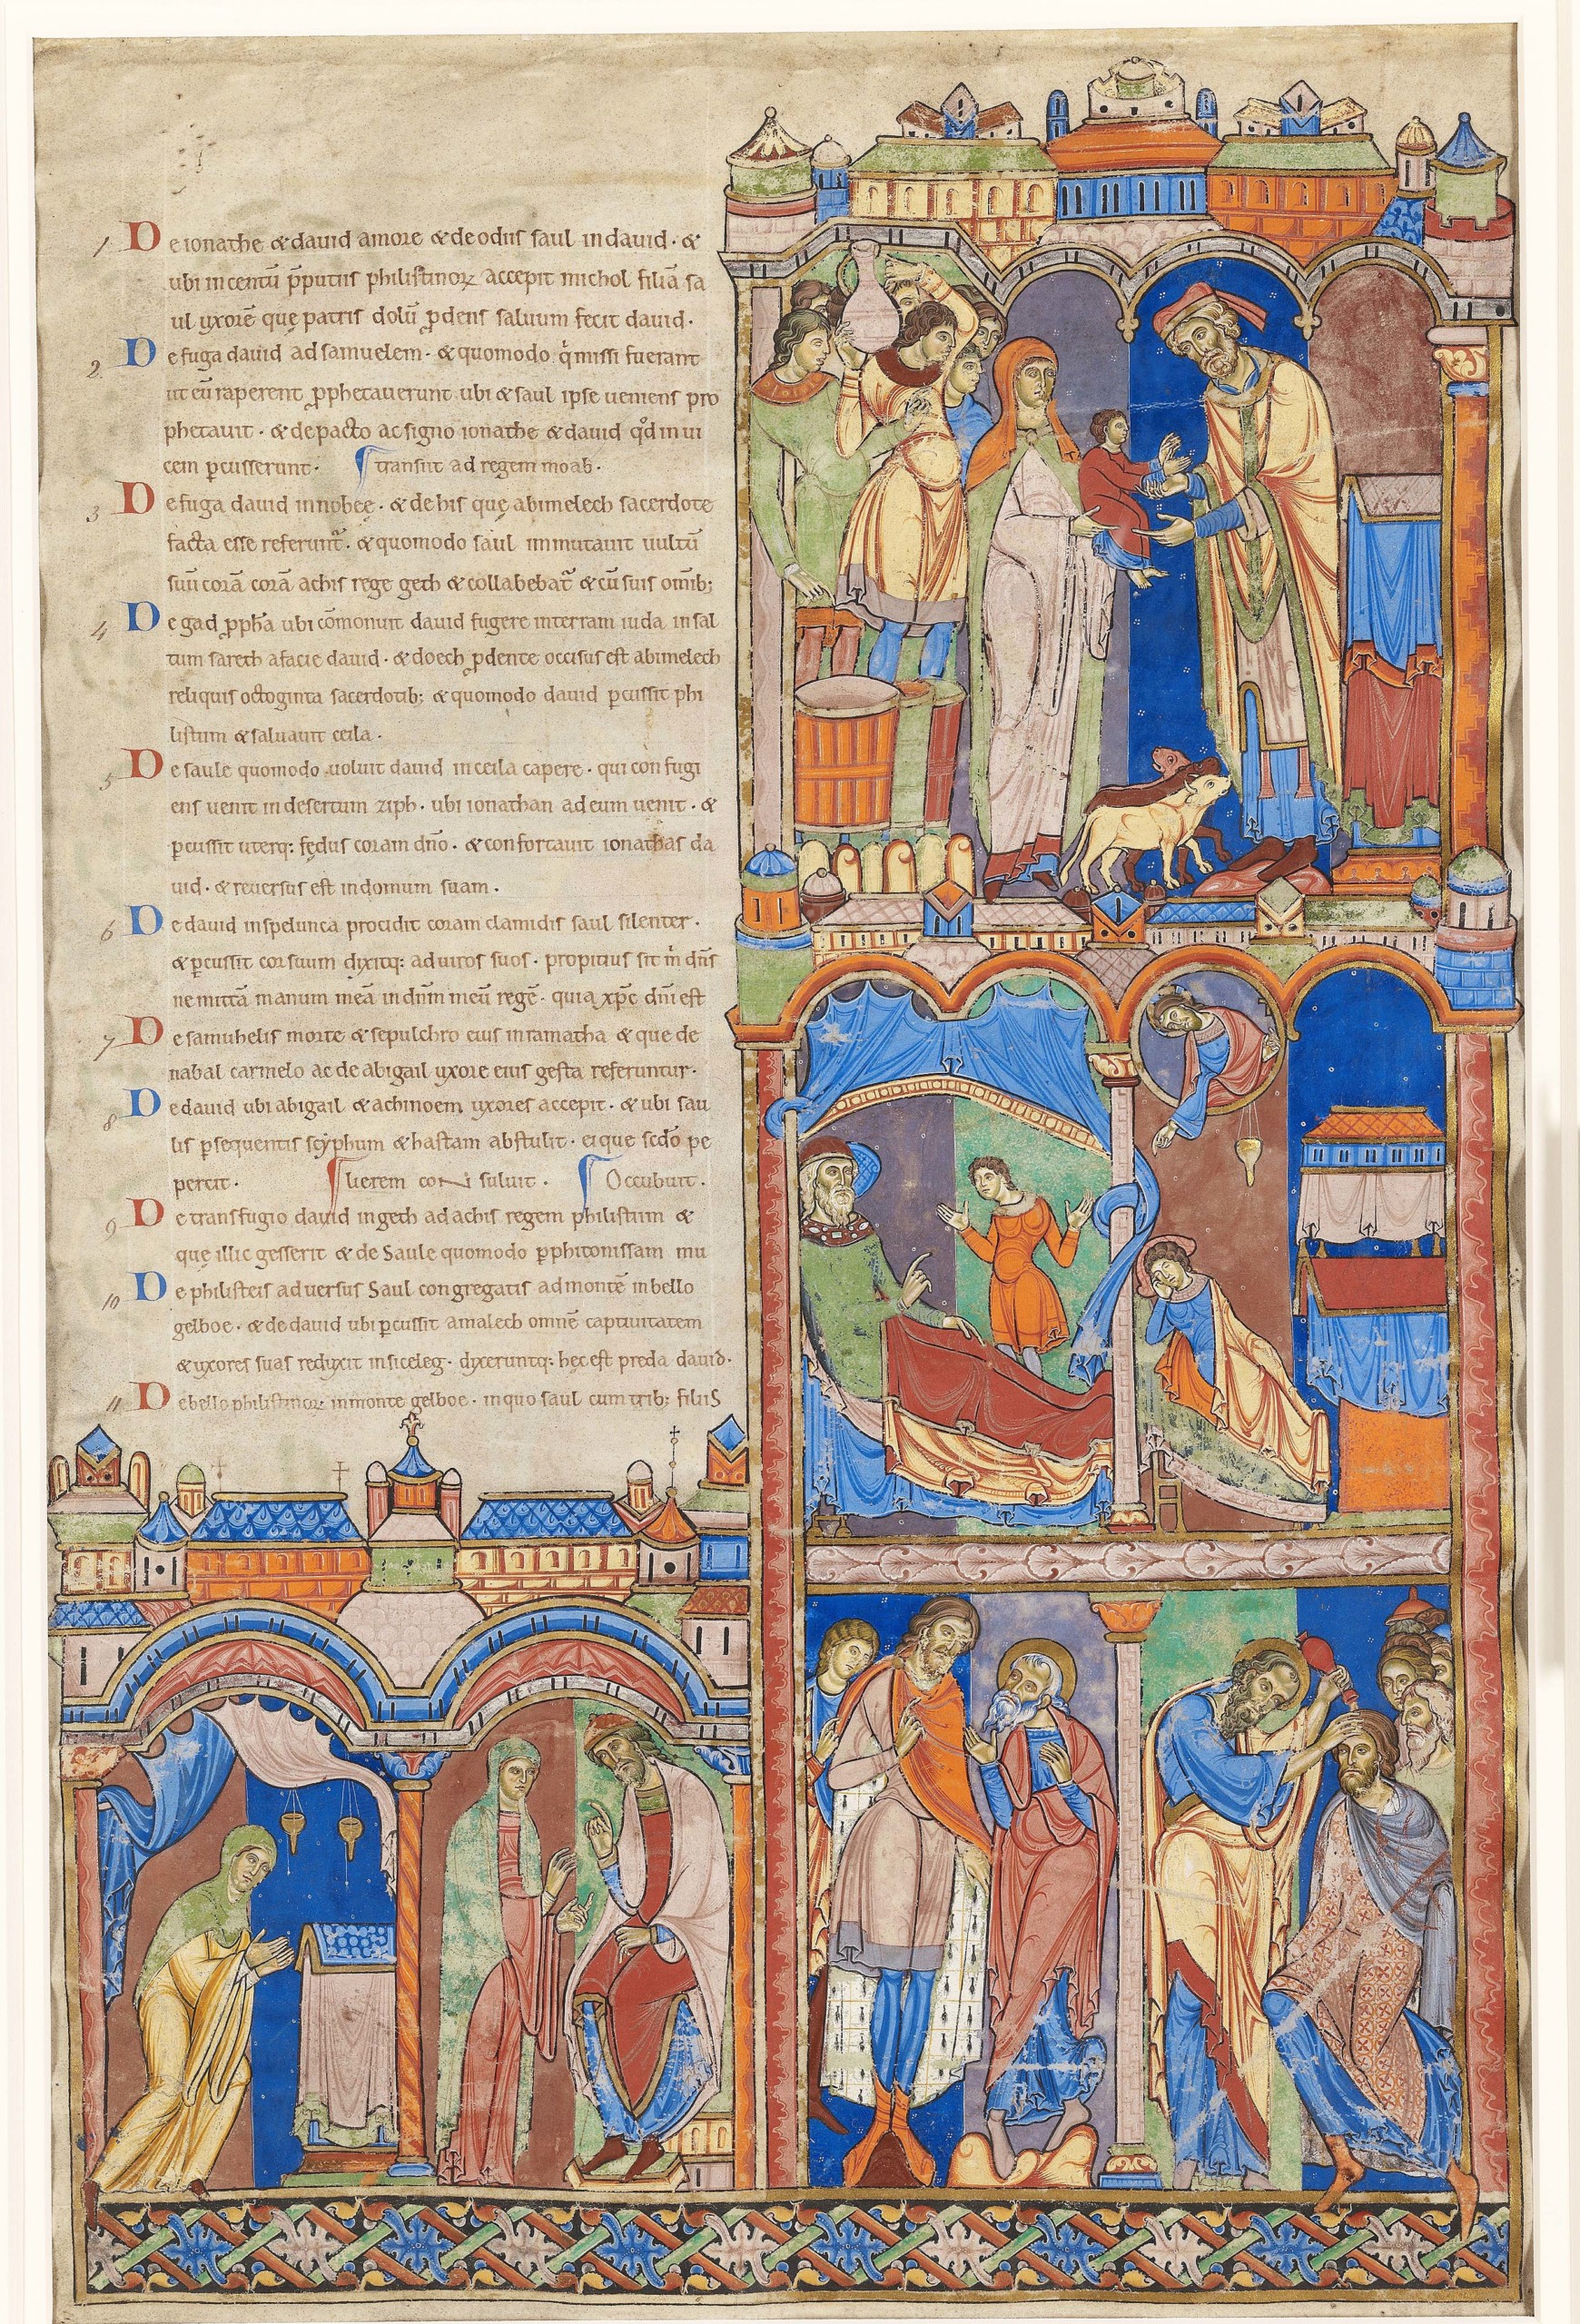 1 De ionathe & dauid amore & de odiis saul in dauid · &
ubi in centū p̄putiis philistinoꝝ accepit michol filiā sa
ul uxorē quę patris dolū ꝓdens saluum fecit dauid ·
2 De fuga dauid ad samuelem · & quomodo q̇ missi fuerant
ut eū raperent ꝓphetauerunt ubi & saul ipse ueniens pro
phetauit · & de pacto ac signo ionathe & dauid qd̄ in ui
cem ꝑcusserunt · transiit ad regem moab ·
3 De fuga dauid in nobee · & de his quę abimelech sacerdote
facta esse referunt̄ · & quomodo saul immutauit uultū
suū corā corā achis rege geth & collabebat̄ & cū suis omīb;
4 De gad ꝓph̄a ubi cōmonuit dauid fugere in terram iuda in sal
tum sareth a facie dauid · & doech ꝓdente occisus est abimelech
reliquis octoginta sacerdotib; & quomodo dauid ꝑcussit phi
listiim & saluauit ceila ·
5 De saule quomodo uoluit dauid in ceila capere · qui con fugi
ens uenit in desertum ziph · ubi ionathan ad eum uenit · &
ꝑcussit uterq: fędus coram dn̄o · & confortauit ionathas da
uid · & reuersus est in domum suam ·
6 De dauid in spelunca procidit coram clamidis saul silenter ·
& ꝑcussit cor suum dixitq: ad uiros suos · propitius sit m̊ dn̄s
ne mittā manum meā in dn̄m meū regē · quia xp̄c dn̄i est
7 De samuhelis morte & sepulchro eius in ramatha & que de
nabal carmelo ac de abigail uxore eius gesta referuntur ·
8 De dauid ubi abigail & achinoem uxores accepit · & ubi sau
lis ꝑsequentis scyphum & hastam abstulit · eique scd̄o pe
percit · lierem con suluit · Occubuit ·
9 De transfugio dauid in geth ad achis regem philistiim &
quę illic gesserit & de Saule quomodo ꝑ phitonissam mu
10 De philisteis aduersus Saul congregatis ad montē in bello
gelboe · & de dauid ubi ꝑcussit amalech omnē captiuitatem
& uxores suas reduxit in siceleg · dixeruntq: hęc est preda dauid ·
11 De bello philistinoꝝ in monte gelboe · in quo saul cum trib; filiis